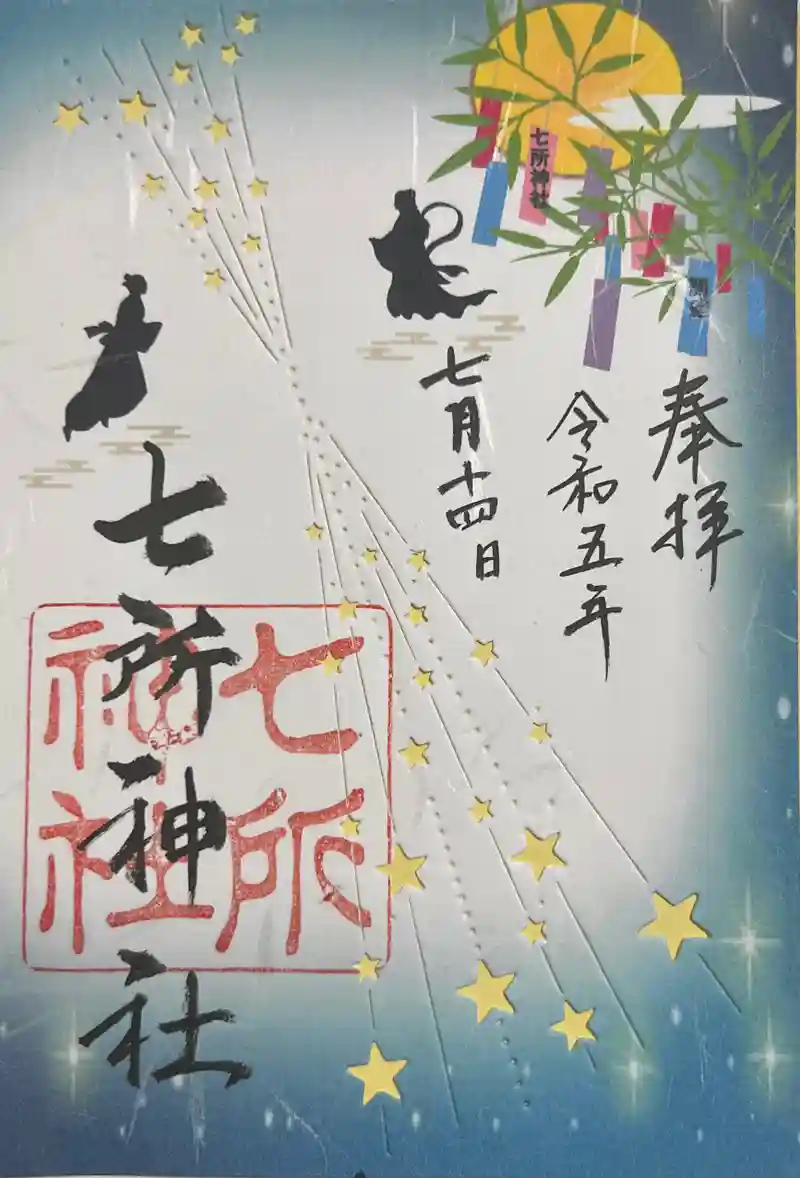 奉拝
令和五年
七月十四日
七所神社
七所神社
七所神社